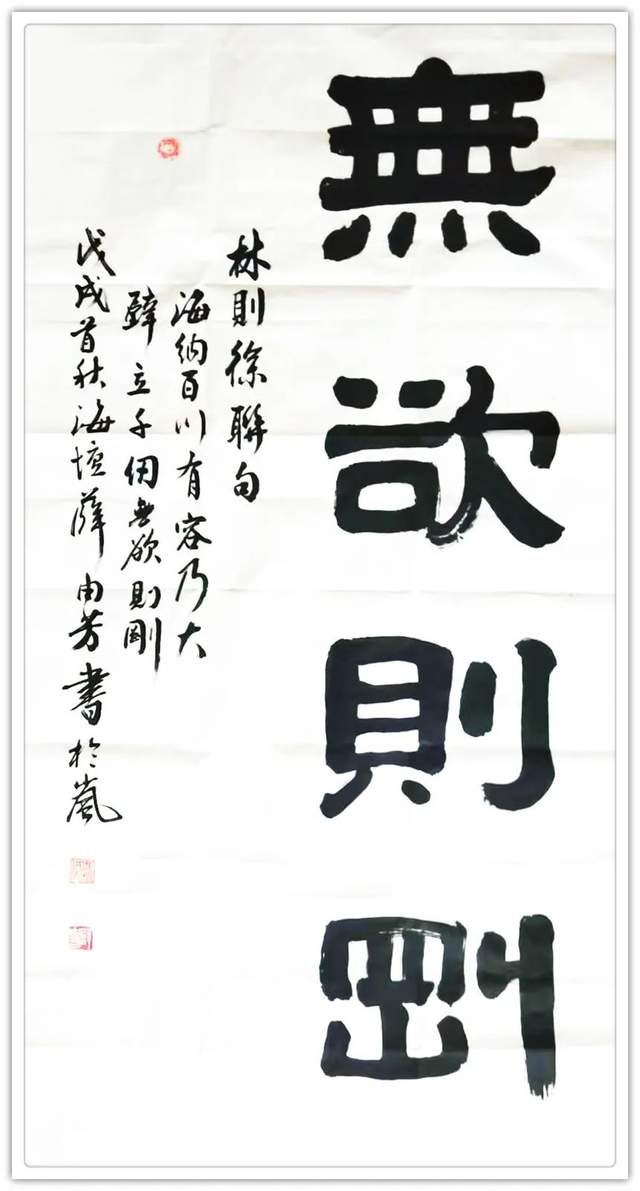 無欲則剛
林則徐聯句
海納百川有容乃大
壁立千仞無欲則剛
戊戌首秋海壇薛由芳書於嵐